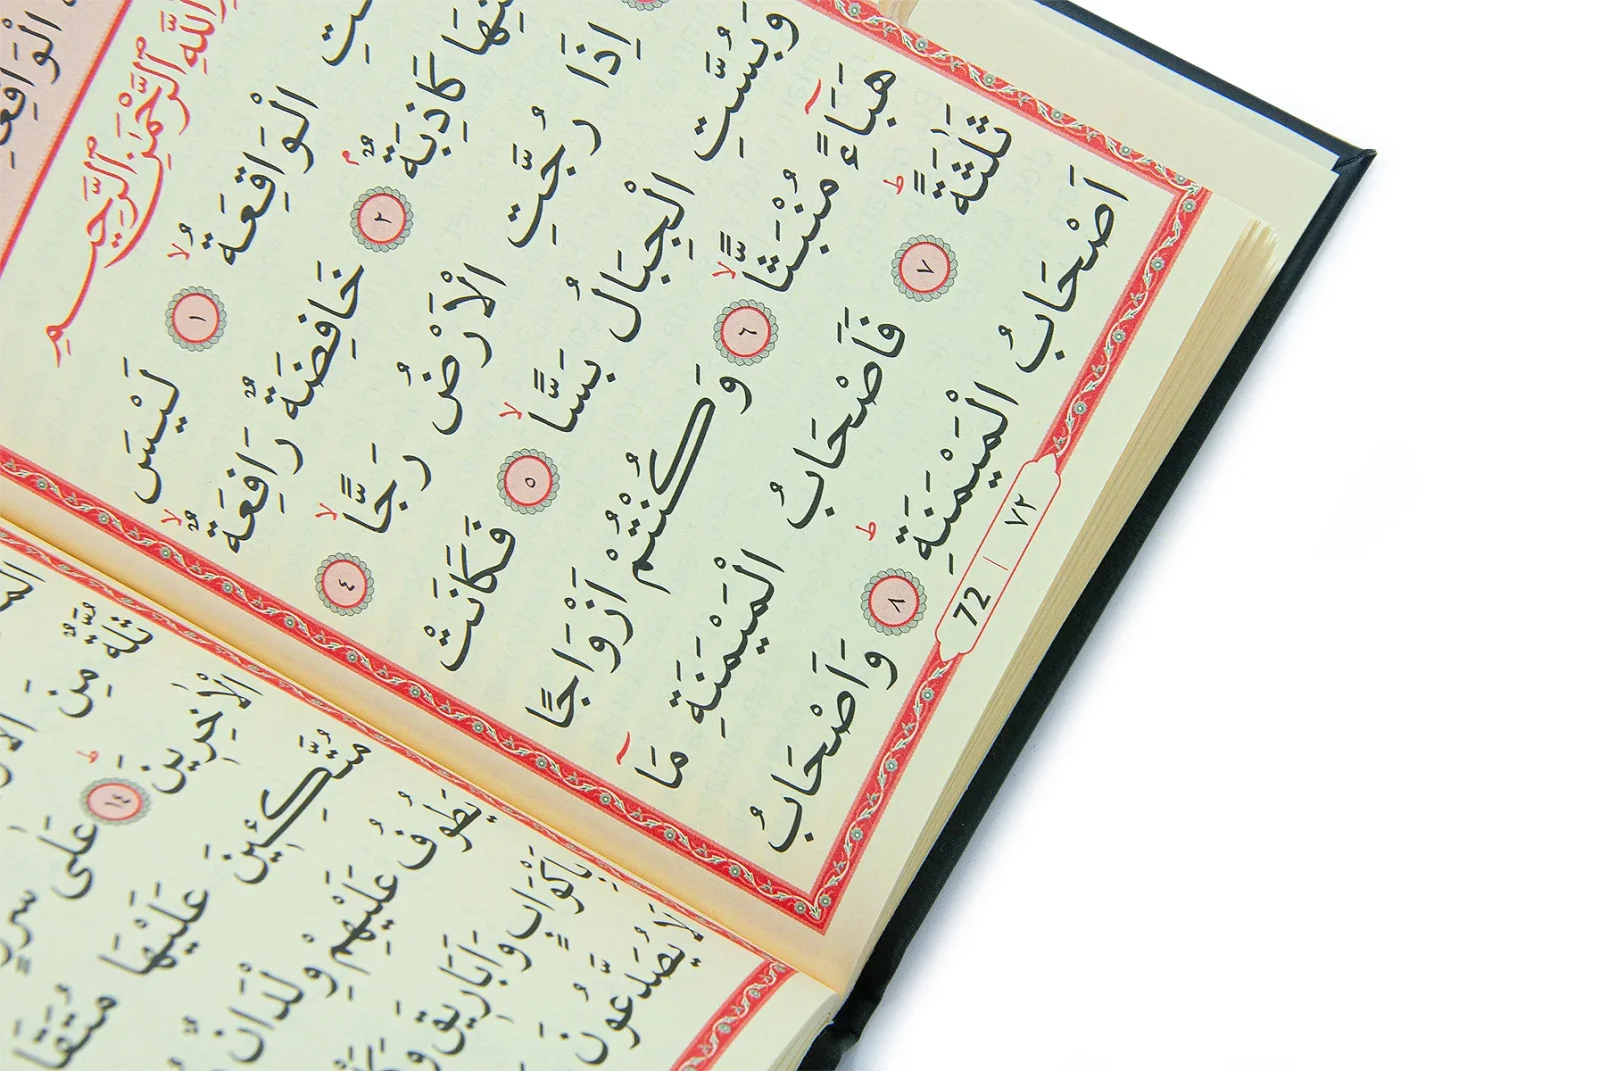 الْوَاقِعَةِ
اللّٰهِ الرَّحْمٰنِ الرَّحِيمِ
الْوَاقِعَةُۙ ١ لَيْسَ
كَاذِبَةٌۢ ٢ خَافِضَةٌ رَافِعَةٌۙ
اِذَا رُجَّتِ الْاَرْضُ رَجًّاۙ ٤
وَبُسَّتِ الْجِبَالُ بَسًّاۙ ٥ فَكَانَتْ
هَبَٓاءً مُنْبَثًّاۙ ٦ وَكُنْتُمْ اَزْوَاجًا
ثَلٰثَةًۜ ٧ فَاَصْحَابُ الْمَيْمَنَةِ مَٓا
اَصْحَابُ الْمَيْمَنَةِۜ ٨ وَاَصْحَابُ
72 | ٧٢
ثُلَّةٌ مِنَ
الْاٰخِرِينَۜ ١٤ عَلٰى
مُتَّكِئِينَ عَلَيْهَا
يَطُوفُ عَلَيْهِمْ وِلْدَانٌ
بِاَكْوَابٍ وَاَبَارِيقَ
لَا يُصَدَّعُونَ